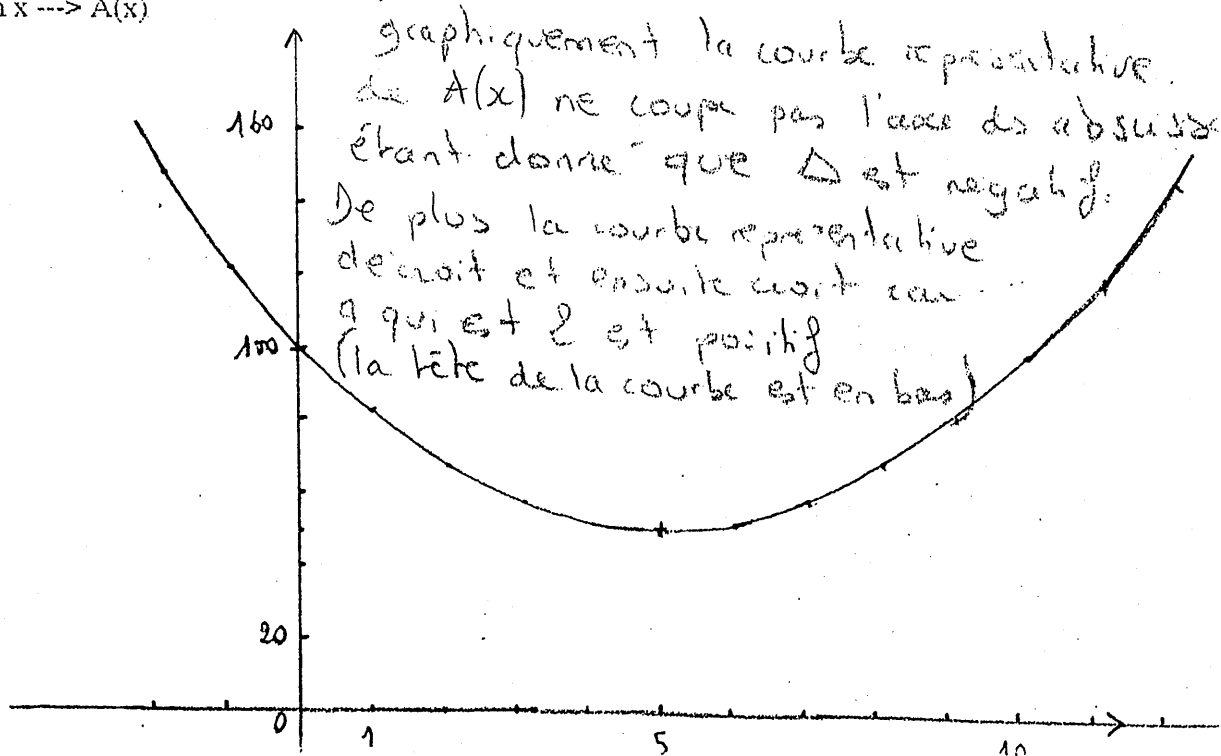 x ---> A(x)
graphiquement la courbe représentative.
de A(x) ne coupe pas l'axe ds absciss
étant donné que Δ est négatif.
De plus la courbe représentative
décroit et ensuite croit car
a qui est 2 et positif
(la tête de la courbe est en bas)
160
100
20
0 1 5 10